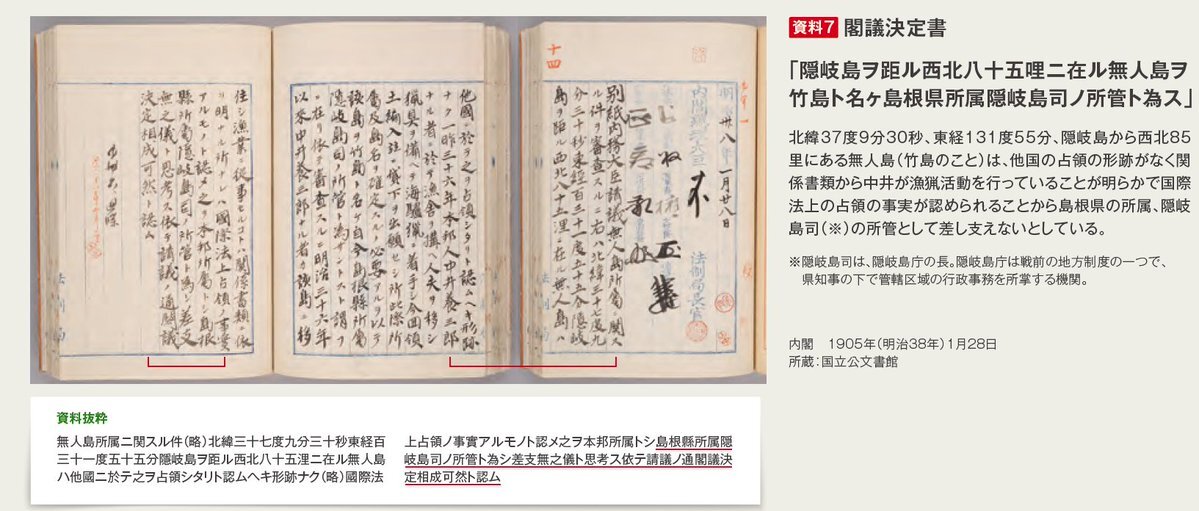 十四
明治卅八年一月廿八日
内閣總理大臣
法制局長官
別紙内務大臣請議無人島所屬ニ關ス
ル件ヲ審査スルニ右ハ北緯三十七度九
分三十秒東經百三十一度五十五分隱岐
島ヲ距ル西北八十五浬ニ在ル無人島ハ
他國ニ於テ之ヲ占領シタリト認ムヘキ形跡
ナク一昨三十六年本邦人中井養三郎
ナル者ニ於テ漁舍ヲ構ヘ人夫ヲ移シ
獵具ヲ備ヘテ海驢獵ニ着手シ今回領
土編入並ニ貸下ヲ出願セシ所此際所
屬及島名ヲ確定スルノ必要アルヲ以テ
該島ヲ竹島ト名ケ自今島根縣所屬
隱岐島司ノ所管ト爲サントスト謂フ
ニ在リ依テ審査スルニ明治三十六年
以來中井養三郎ナル者カ該島ニ移
住シ漁業ニ從事セルコトハ關係書類ニ依
リ明ナル所ナルハ國際法上占領ノ事實
アルモノト認メ之ヲ本邦所屬トシ島根
縣所屬隱岐島司ノ所管ト爲シ差支
無之儀ト思考ス依テ請議ノ通閣議
決定相成可然ト認ム
法制局
資料7 閣議決定書
「隠岐島ヲ距ル西北八十五哩ニ在ル無人島ヲ
竹島ト名ヶ島根県所属隠岐島司ノ所管ト為ス」
北緯37度9分30秒、東経131度55分、隠岐島から西北85
里にある無人島(竹島のこと)は、他国の占領の形跡がなく関
係書類から中井が漁猟活動を行っていることが明らかで国際
法上の占領の事実が認められることから島根県の所属、隠岐
島司(※)の所管として差し支えないとしている。
※隠岐島司は、隠岐島庁の長。隠岐島庁は戦前の地方制度の一つで、
県知事の下で管轄区域の行政事務を所掌する機関。
内閣 1905年(明治38年)1月28日
所蔵:国立公文書館
資料抜粋
無人島所属ニ関スル件(略)北緯三十七度九分三十秒東経百
三十一度五十五分隠岐島ヲ距ル西北八十五浬ニ在ル無人島
ハ他國ニ於テ之ヲ占領シタリト認ムヘキ形跡ナク(略)國際法
上占領ノ事實アルモノト認メ之ヲ本邦所属トシ島根縣所属隠
岐島司ノ所管ト為シ差支無之儀ト思考ス依テ請議ノ通閣議決
定相成可然ト認ム